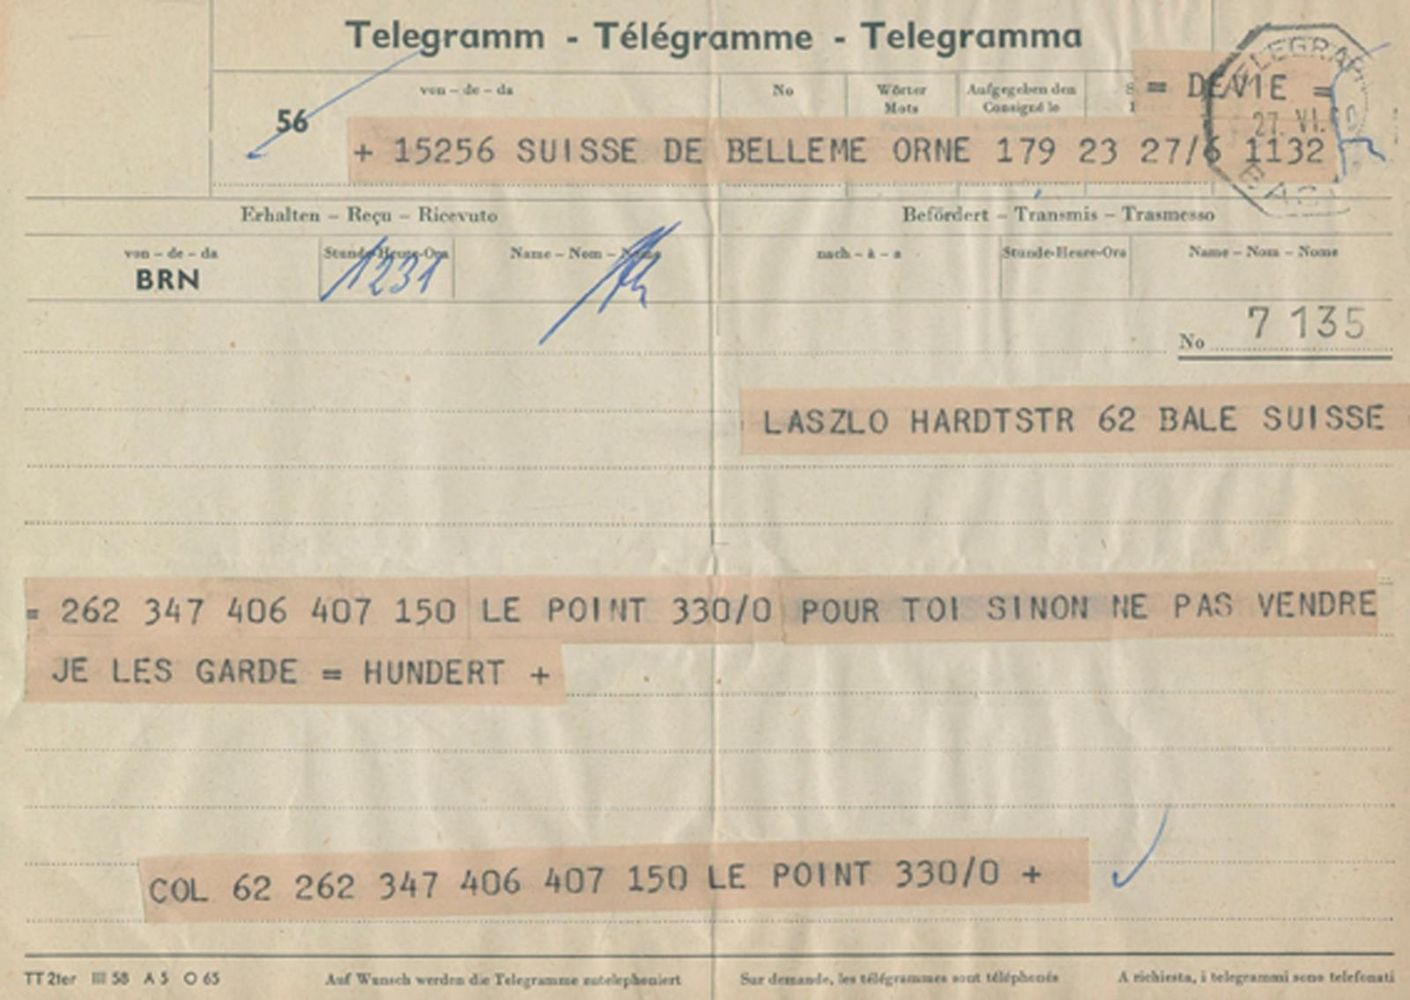 Telegramm - Télégramme - Telegramma
von – de – da
No
Wörter
Mots
Aufgegeben den
Consigné le
= DEVIE =
56
+ 15256 SUISSE DE BELLEME ORNE 179 23 27/6 1132
27. VI.
Erhalten – Reçu – Ricevuto
Befördert – Transmis – Trasmesso
von – de – da
Stunde-Heure-Ora
Name – Nom – Nome
nach – à – a
Stunde-Heure-Ora
Name – Nom – Nome
BRN
1231
No 7 135
LASZLO HARDTSTR 62 BALE SUISSE
= 262 347 406 407 150 LE POINT 330/0 POUR TOI SINON NE PAS VENDRE
JE LES GARDE = HUNDERT +
COL 62 262 347 406 407 150 LE POINT 330/0 +
TT 2ter III 58 A 5 O 65
Auf Wunsch werden die Telegramme zutelephoniert
Sur demande, les télégrammes sont téléphonés
A richiesta, i telegrammi sono telefonati